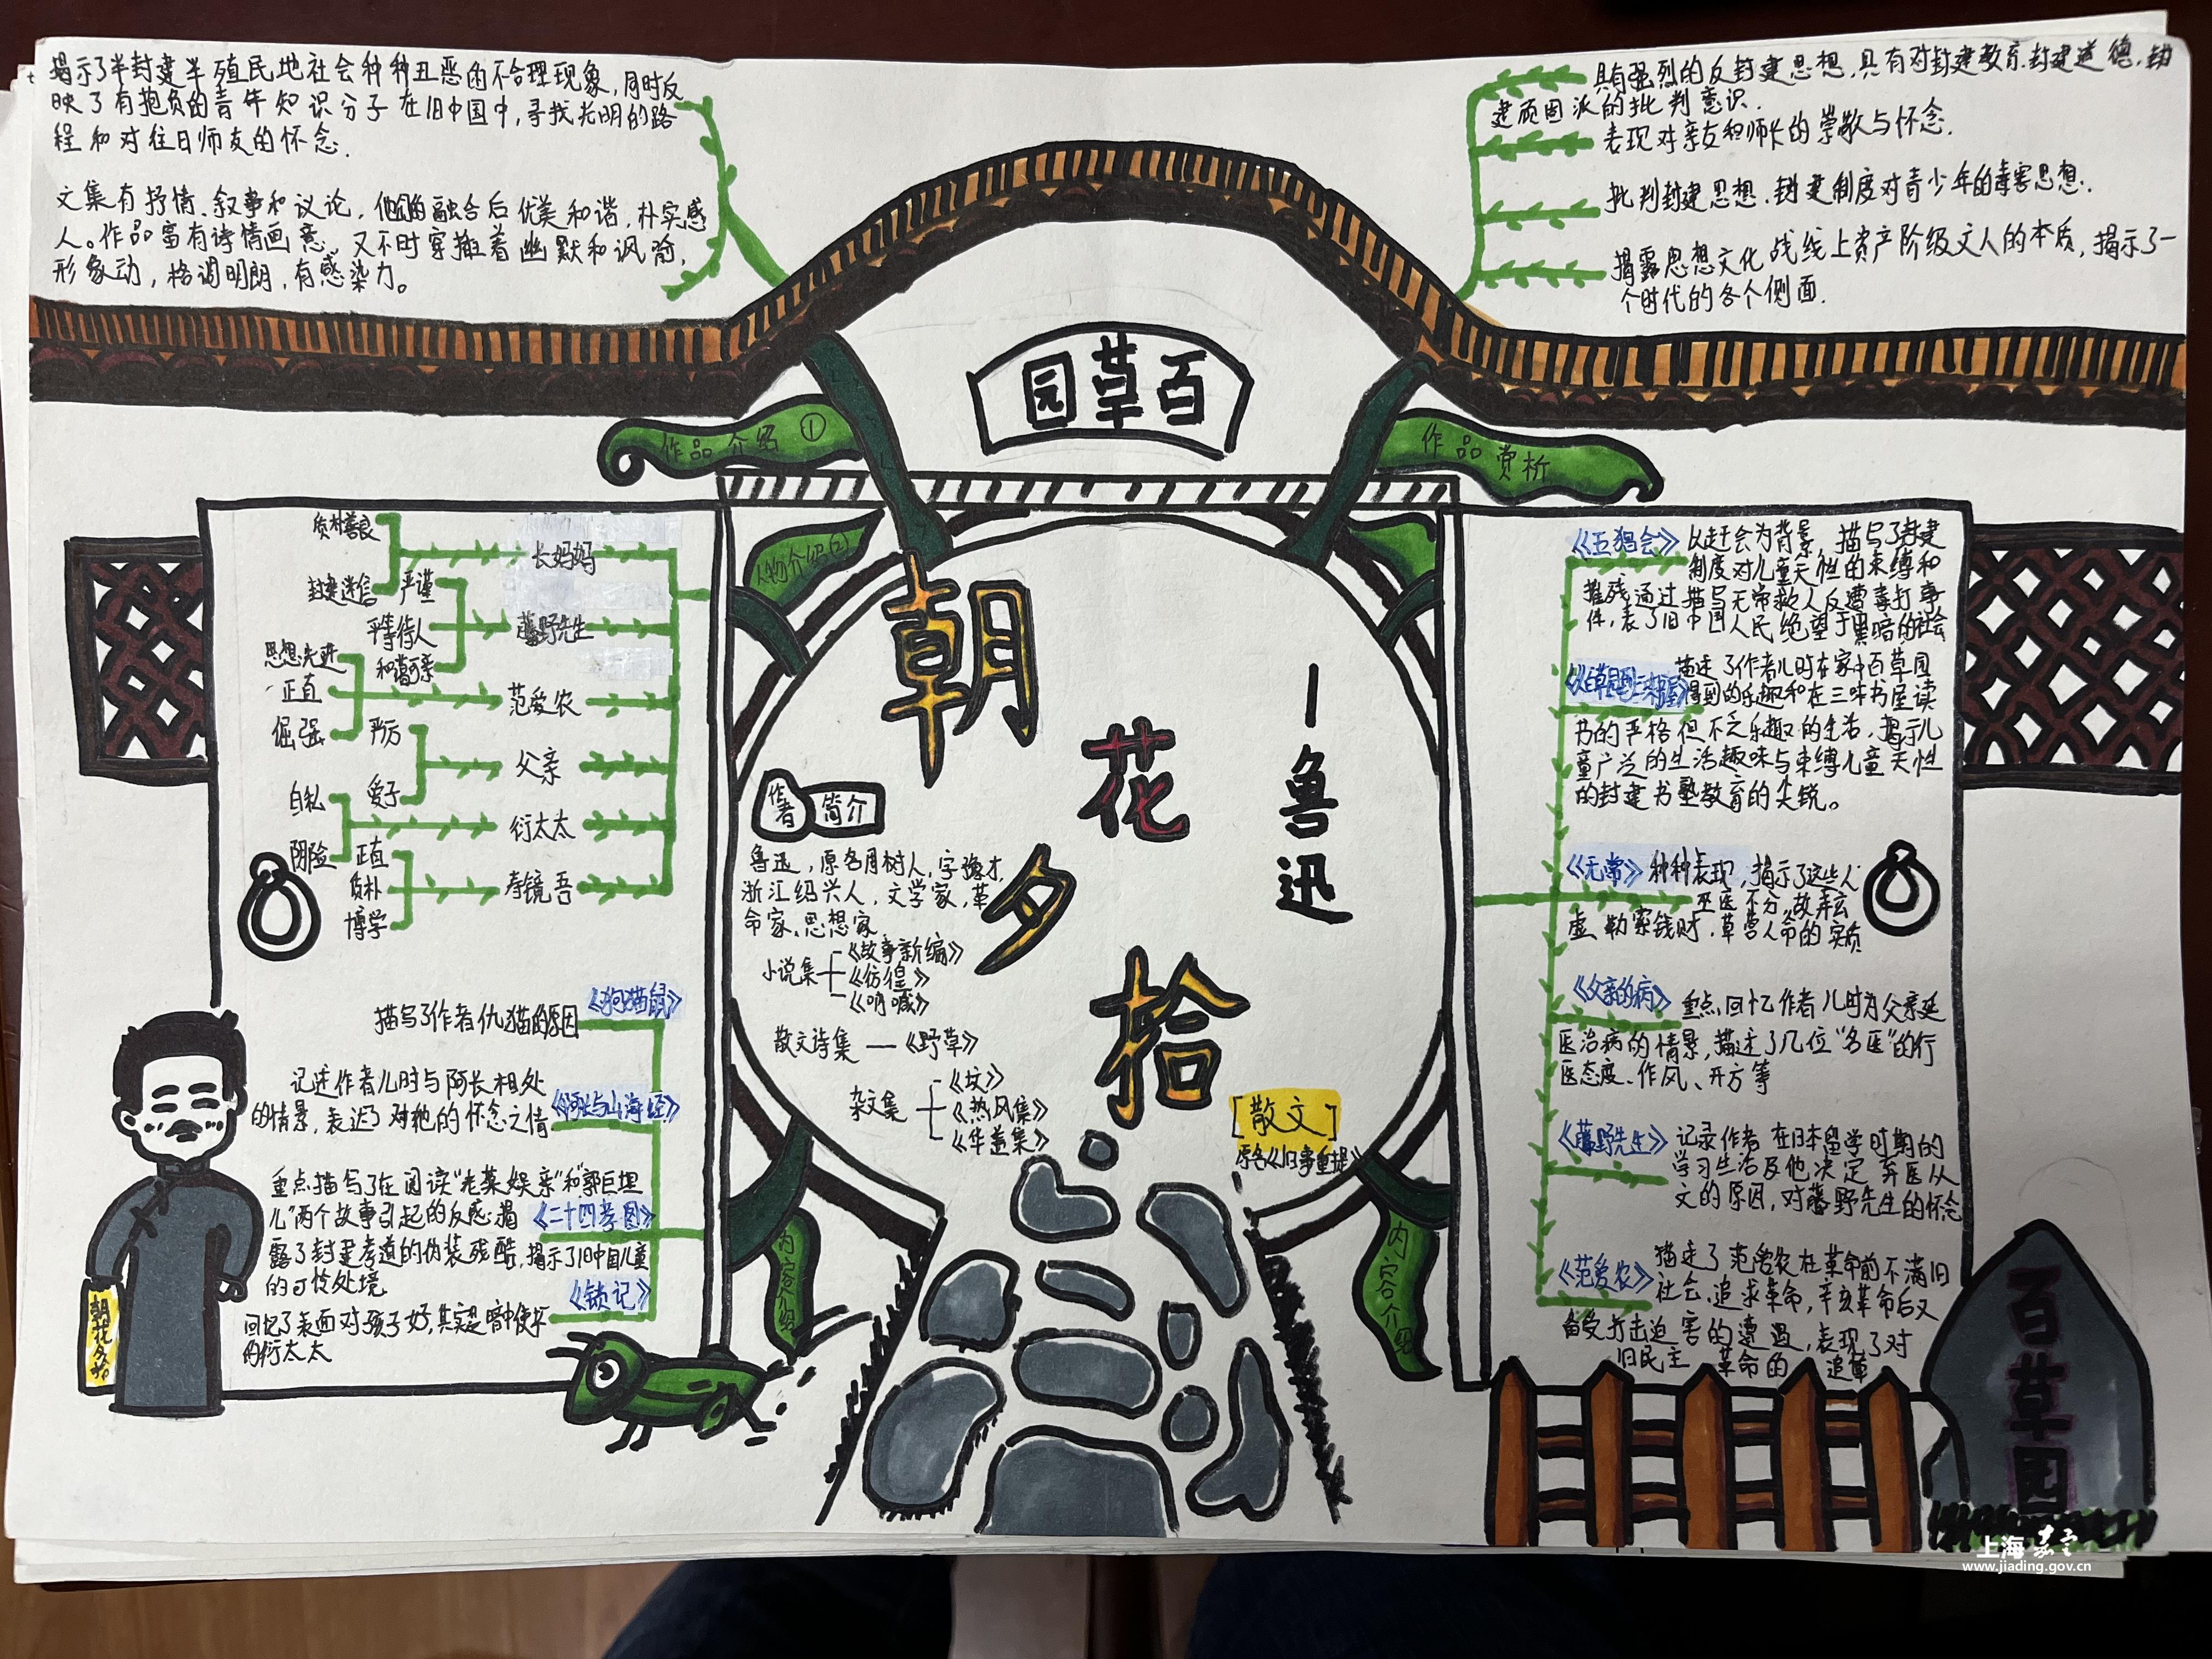 揭示了半封建半殖民地社会种种丑恶的不合理现象,同时反
映了有抱负的青年知识分子在旧中国中,寻找光明的路
程和对往日师友的怀念.
文集有抒情、叙事和议论,他们的融合后优美和谐,朴实感
人。作品富有诗情画意,又不时穿插着幽默和讽喻,
形象动,格调明朗,有感染力。
具有强烈的反封建思想,具有对封建教育.封建道德,封
建顽固派的批判意识.
表现对亲友和师长的崇敬与怀念.
批判封建思想.封建制度对青少年的毒害思想.
揭露思想文化战线上资产阶级文人的本质,揭示了一
个时代的各个侧面.
园草百
作品介绍①
作品赏析
人物介绍②
质朴善良
封建迷信
长妈妈
严谨
平等待人
和蔼可亲
藤野先生
思想先进
正直
倔强
范爱农
严厉
爱子
父亲
自私
阴险
衍太太
正直
质朴
博学
寿镜吾
《狗猫鼠》
描写了作者仇猫的原因
《阿长与山海经》
记述作者儿时与阿长相处
的情景,表达了对她的怀念之情
《二十四孝图》
重点描写了在阅读"老莱娱亲"和"郭巨埋
儿"两个故事引起的反感.揭
露了封建孝道的伪装残酷,揭示了旧中国儿童
的可怜处境
《锁记》
回忆了表面对孩子好,其实是暗中使坏
的衍太太
内容介绍
朝花夕拾
朝
花
夕
拾
—鲁迅
作者简介
鲁迅,原名周树人,字豫才,
浙江绍兴人,文学家,革
命家、思想家
小说集
《故事新编》
《彷徨》
《呐喊》
散文诗集—《野草》
杂文集
《坟》
《热风集》
《华盖集》
[散文]
原名《旧事重提》
内容介绍
《五猖会》以赶会为背景,描写了封建
制度对儿童天性的束缚和
摧残通过描写无常救人反遭毒打事
件,表了旧中国人民绝望于黑暗的社会
描述了作者儿时在家中百草园
得到的乐趣和在三味书屋读
书的严格但不乏乐趣的生活,揭示儿
童广泛的生活趣味与束缚儿童天性
的封建书塾教育的尖锐。
《无常》种种表现,揭示了这些人
巫医不分,故弄玄
虚,勒索钱财,草菅人命的实质
《父亲的病》重点回忆作者儿时为父亲延
医治病的情景,描述了几位"名医"的行
医态度、作风、开方等
《藤野先生》记录作者在日本留学时期的
学习生活及他决定弃医从
文的原因,对藤野先生的怀念
《范爱农》描述了范爱农在革命前不满旧
社会、追求革命,辛亥革命后又
备受打击迫害的遭遇,表现了对
旧民主革命的
百草园
上海嘉定
www.jiading.gov.cn